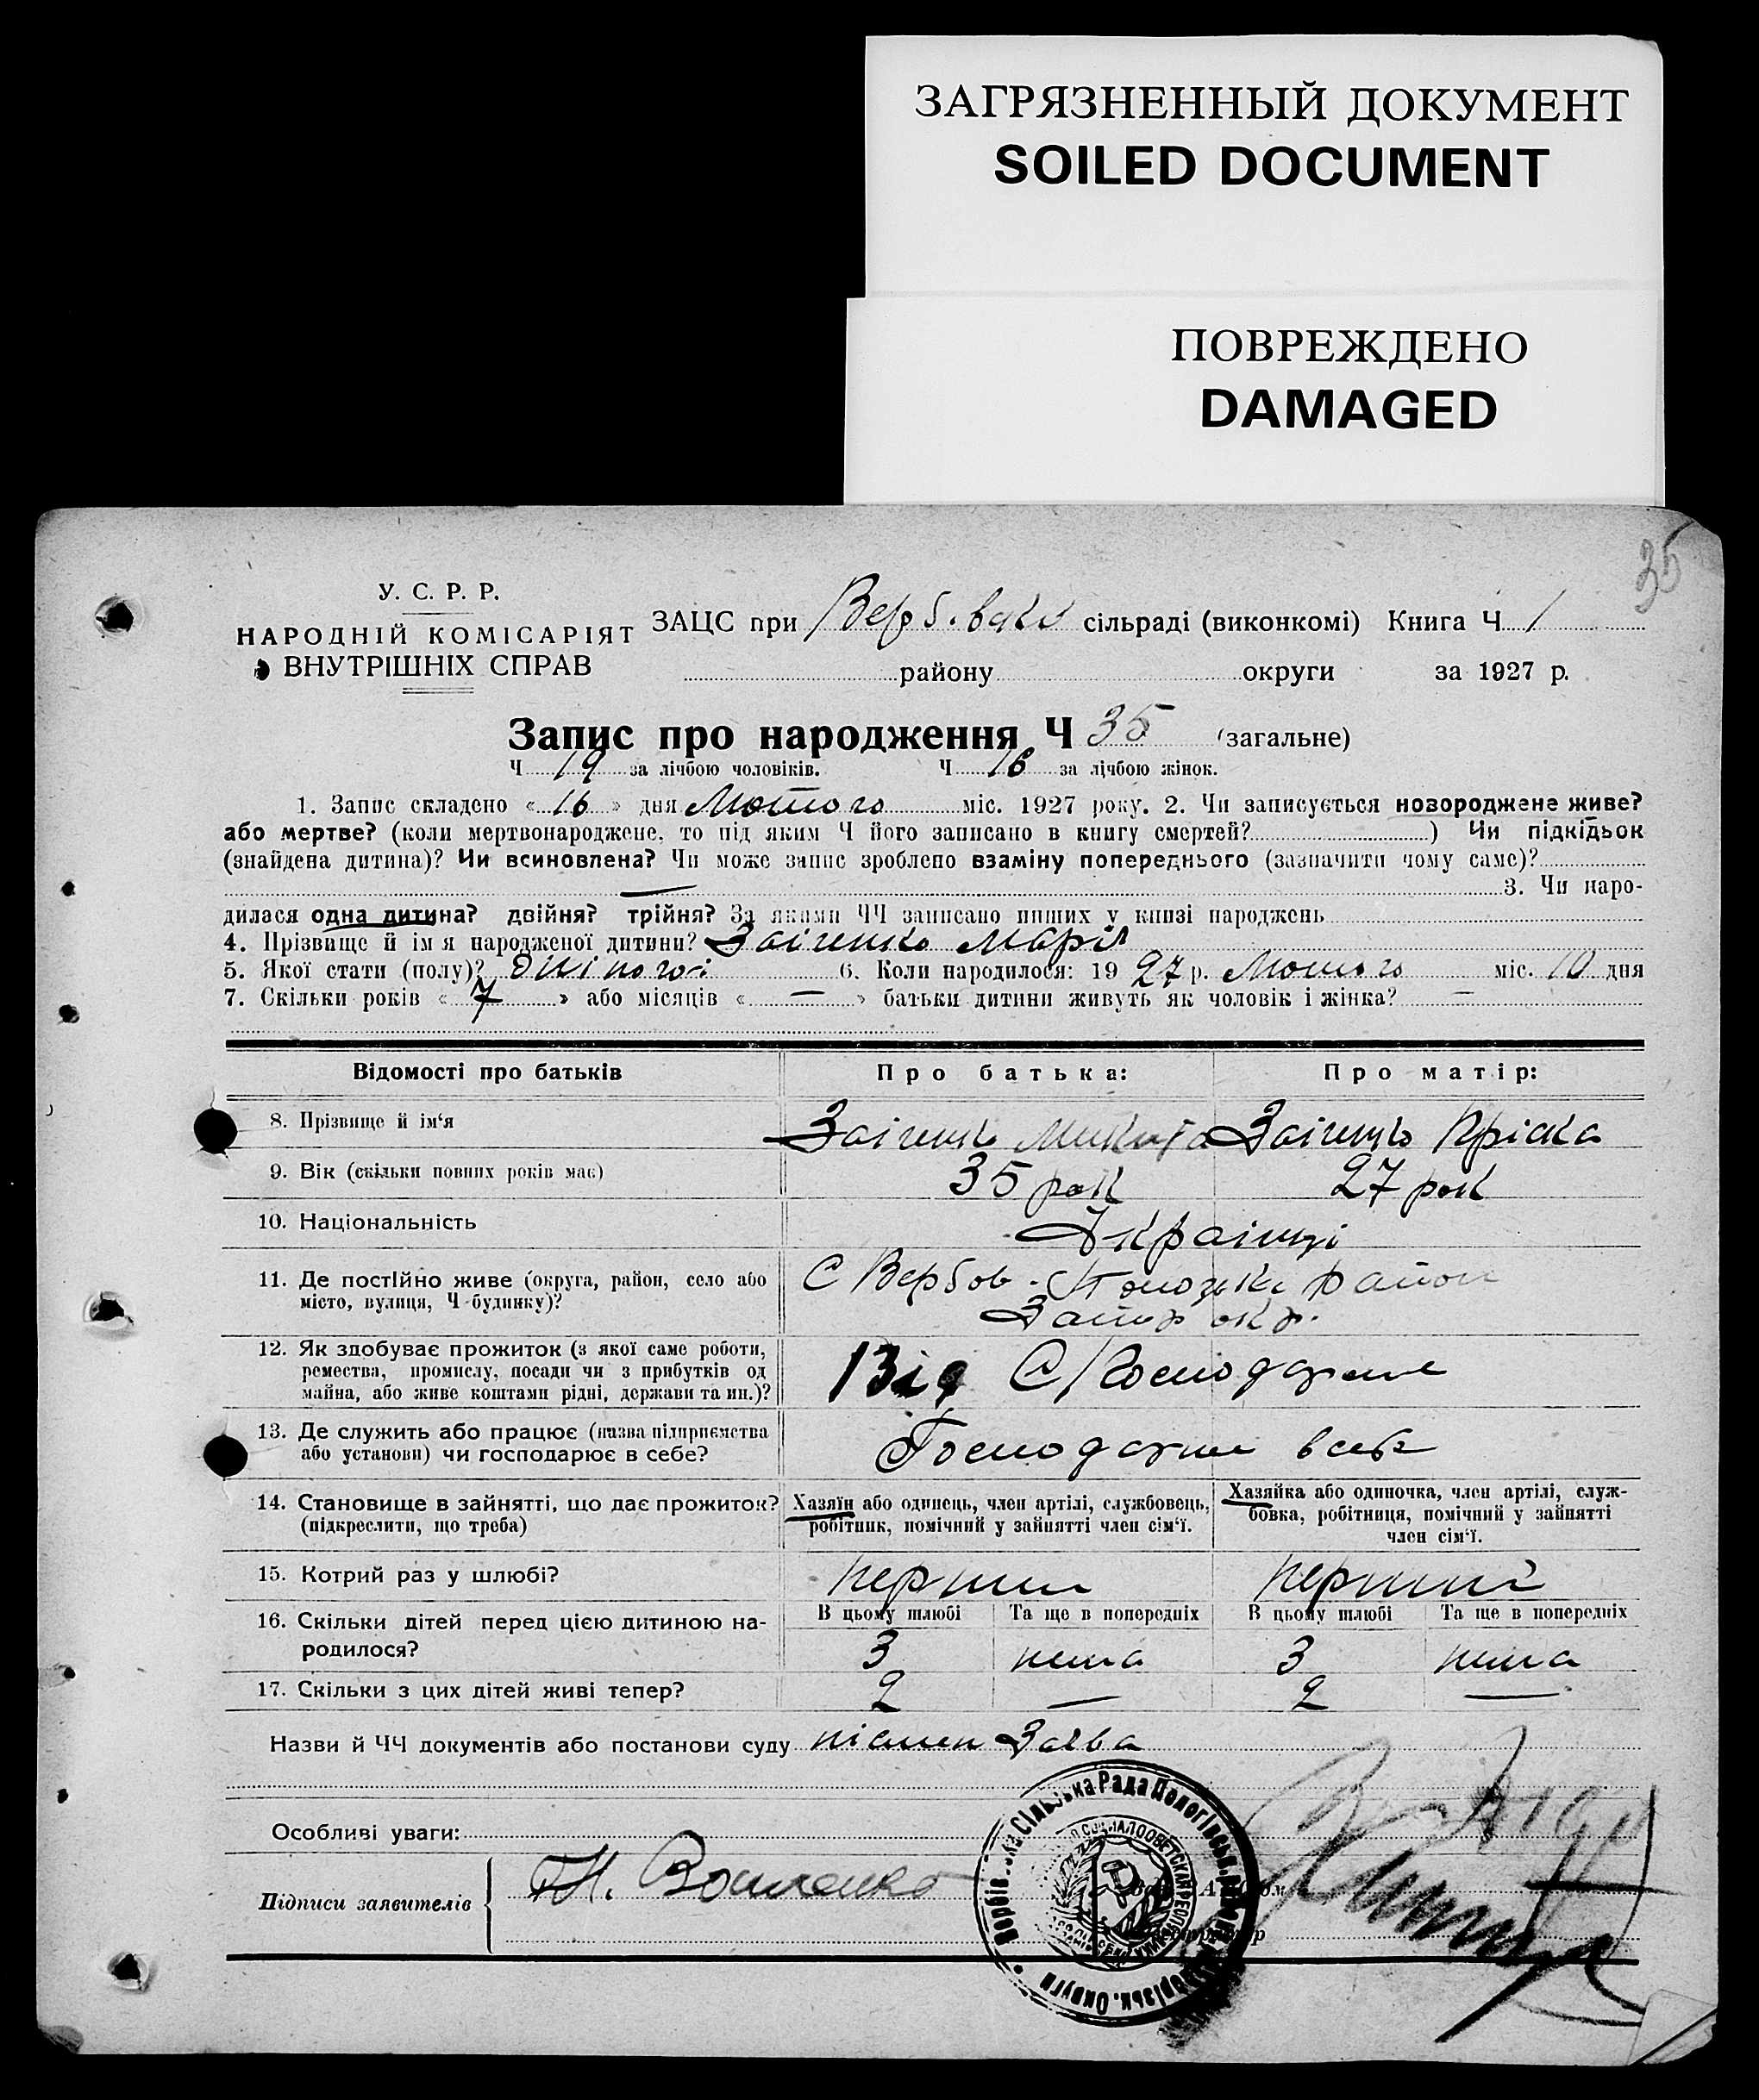 ЗАГРЯЗНЕННЫЙ ДОКУМЕНТ
SOILED DOCUMENT
ПОВРЕЖДЕНО
DAMAGED
35
У. С. Р. Р.
НАРОДНІЙ КОМІСАРІЯТ
ВНУТРІШНІХ СПРАВ
ЗАЦС при сільраді (виконкомі) Книга Ч 1
району округи за 1927 р.
Запис про народження Ч 35 (загальне)
Ч 19 за лічбою чоловіків. Ч 16 за лічбою жінок.
1. Запис складено « 16 » дня Лютого міс. 1927 року. 2. Чи записується новороджене живе?
або мертве? (коли мертвонароджене, то під яким Ч його записано в книгу смертей? ) Чи підкідьок
(знайдена дитина)? Чи всиновлена? Чи може запис зроблено взаміну попереднього (зазначити чому саме)?
— 3. Чи наро-
дилася одна дитина? двійня? трійня? За якими ЧЧ записано инших у книзі народжень
4. Прізвище й ім'я народженої дитини? Заіченко Марія
5. Якої статі (полу)? жіночої 6. Коли народилося: 19 27 р. Лютого міс. 10 дня
7. Скільки років « 7 » або місяців « — » батьки дитини живуть як чоловік і жінка? —
Відомості про батьків Про батька: Про матір:
8. Прізвище й ім'я Заіченко Микита Заіченко Пріска
9. Вік (скільки повних років має) 35 рок 27 рок
10. Національність Українці
11. Де постійно живе (округа, район, село або
місто, вулиця, Ч будинку)? С Вербов. район
Запор окр.
12. Як здобуває прожиток (з якої саме роботи,
ремества, промислу, посади чи з прибутків од
майна, або живе коштами рідні, держави та ин.)? Від С/Господарства
13. Де служить або працює (назва підприємства
або установи) чи господарює в себе? в себе
14. Становище в зайнятті, що дає прожиток?
(підкреслити, що треба)
Хазяїн або одинець, член артілі, службовець,
робітник, помічний у зайнятті член сім'ї.
Хазяйка або одиночка, член артілі, служ-
бовка, робітниця, помічний у зайнятті
член сім'ї.
15. Котрий раз у шлюбі? перший перший
16. Скільки дітей перед цією дитиною на-
родилося?
В цьому шлюбі Та ще в попередніх В цьому шлюбі Та ще в попередніх
3 нема 3 нема
17. Скільки з цих дітей живі тепер? 2 — 2 —
Назви й ЧЧ документів або постанови суду писмен Заява
Особливі уваги:
Підписи заявителів
Сільська Рада Пологівськ. Округи